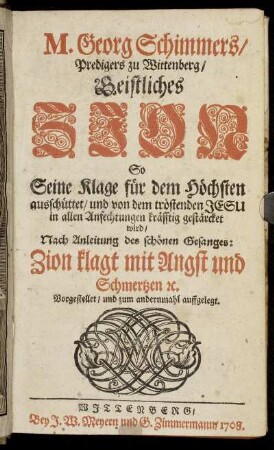 M. Georg Schimmers/
Predigers zu Wittenberg/
Geistliches
ZION
So
Seine Klage für dem Höchsten
ausschüttet/ und von dem tröstenden JESU
in allen Anfechtungen kräfftig gestärcket
wird/
Nach Anleitung des schönen Gesanges:
Zion klagt mit Angst und
Schmertzen ꝛc.
Vorgestellet/ und zum andernmahl auffgelegt.
WITTENBERG/
Bey J. W. Meyern und G. Zimmermann/ 1708.